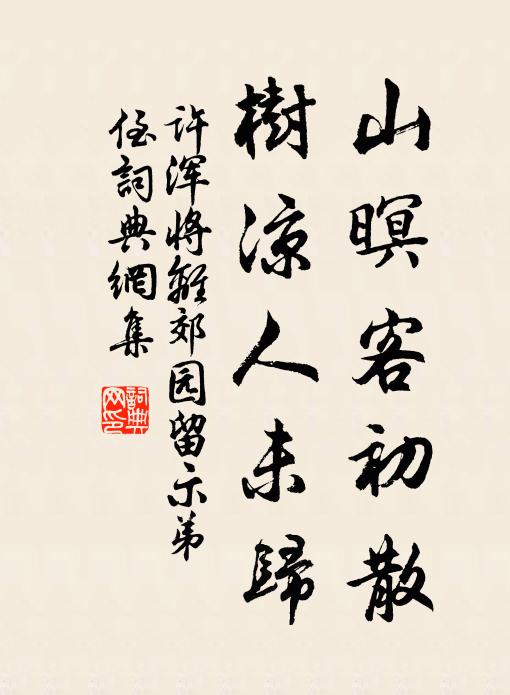 山暝客初散
樹涼人未歸
许浑将離郊园留示弟
侄詞典網集
詞典
网印